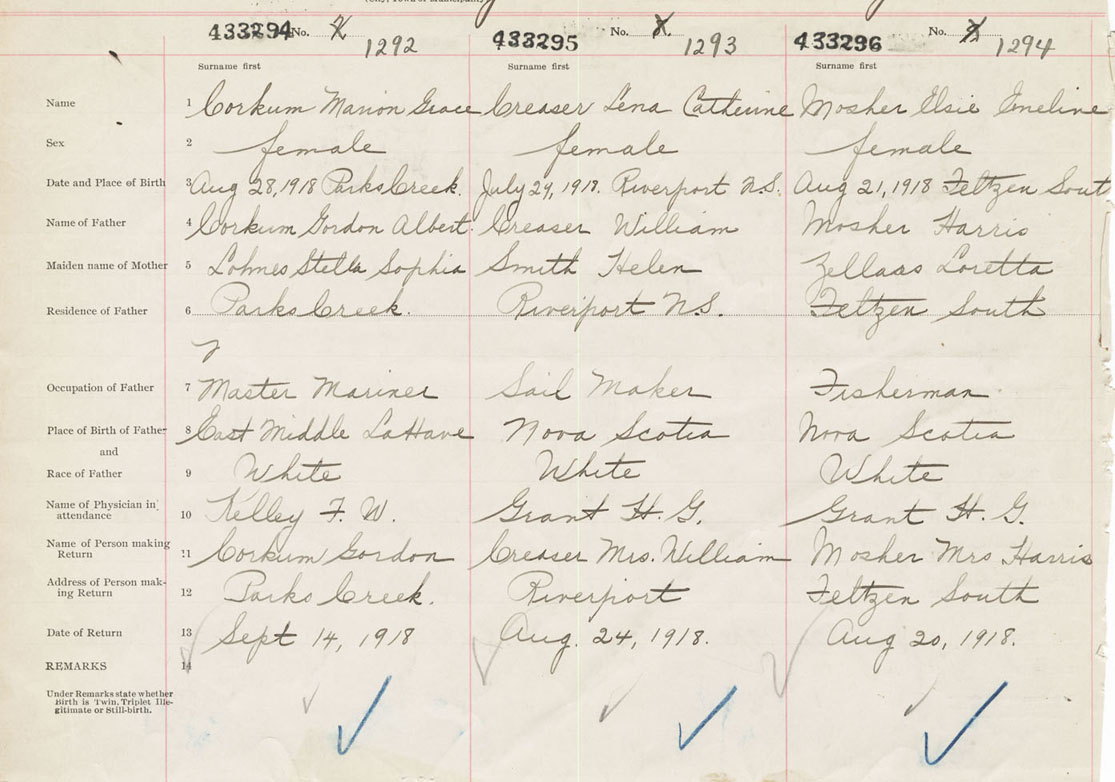 433294 No. 1292 433295 No. 1293 433296 No. 1294
Surname first Surname first Surname first
Name 1 Corkum Marion Grace Creaser Lena Catherine Mosher Elsie Emeline
Sex 2 female female female
Date and Place of Birth 3 Aug 28, 1918 Parks Creek. July 29, 1918. Riverport N.S. Aug 21, 1918 Feltzen Sout
Name of Father 4 Corkum Gordon Albert. Creaser William Mosher Harris
Maiden name of Mother 5 Lohnes Stella Sophia Smith Helen Zellars Loretta
Residence of Father 6 Parks Creek. Riverport N.S. Feltzen South
Occupation of Father 7 Master Mariner Sail Maker Fisherman
Place of Birth of Father 8 East Middle LaHave Nova Scotia Nova Scotia
and
Race of Father 9 White White White
Name of Physician in
attendance 10 Kelley F. W. Grant H. G. Grant H. G.
Name of Person making
Return 11 Corkum Gordon Creaser Mrs. William Mosher Mrs Harris
Address of Person mak-
ing Return 12 Parks Creek. Riverport Feltzen South
Date of Return 13 Sept 14, 1918 Aug. 24, 1918. Aug 20, 1918.
REMARKS 14
Under Remarks state whether
Birth is Twin, Triplet Ille-
gitimate or Still-birth.